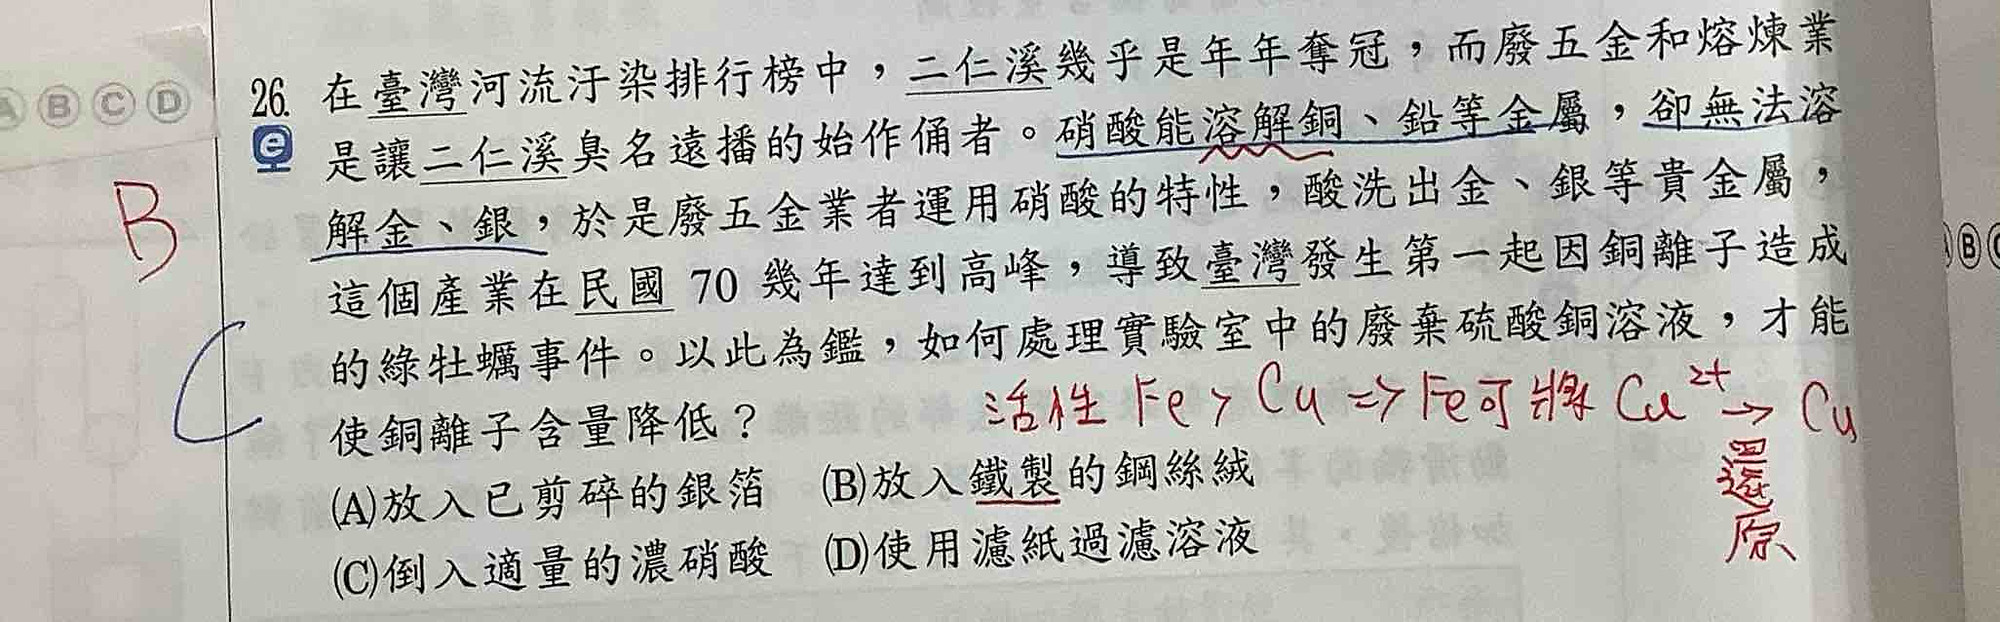 26. 在臺灣河流汙染排行榜中，二仁溪幾乎是年年奪冠，而廢五金和熔煉業
是讓二仁溪臭名遠播的始作俑者。硝酸能溶解銅、鉛等金屬，卻無法溶
解金、銀，於是廢五金業者運用硝酸的特性，酸洗出金、銀等貴金屬，
這個產業在民國 70 幾年達到高峰，導致臺灣發生第一起因銅離子造成
的綠牡蠣事件。以此為鑑，如何處理實驗室中的廢棄硫酸銅溶液，才能
使銅離子含量降低？
活性 Fe > Cu => Fe可將 Cu²⁺ → Cu
還原
(A)放入已剪碎的銀箔 (B)放入鐵製的鋼絲絨
(C)倒入適量的濃硝酸 (D)使用濾紙過濾溶液
B
C
Ⓐ Ⓑ Ⓒ Ⓓ
e
Ⓑ